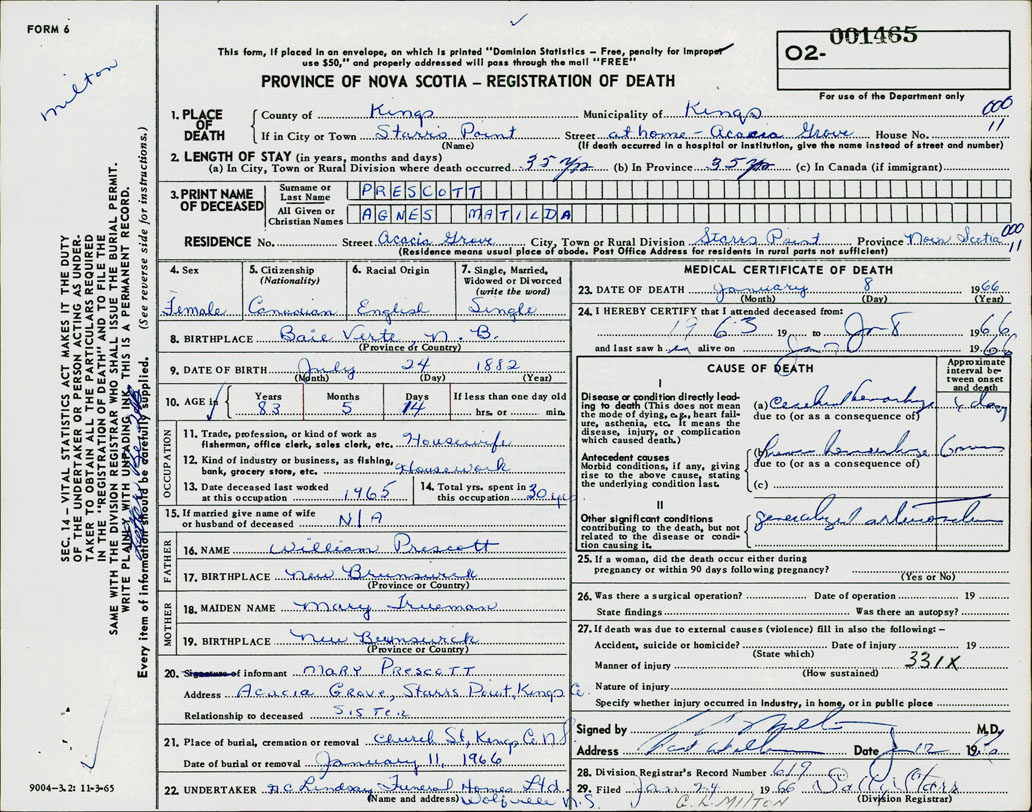 FORM 6
milton
001465
O2-
This form, if placed in an envelope, on which is printed "Dominion Statistics – Free, penalty for improper
use $50," and properly addressed will pass through the mail "FREE"
PROVINCE OF NOVA SCOTIA – REGISTRATION OF DEATH
For use of the Department only
SEC. 14 – VITAL STATISTICS ACT MAKES IT THE DUTY
OF THE UNDERTAKER OR PERSON ACTING AS UNDER-
TAKER TO OBTAIN ALL THE PARTICULARS REQUIRED
IN THE "REGISTRATION OF DEATH" AND TO FILE THE
SAME WITH THE DIVISION REGISTRAR WHO SHALL ISSUE THE BURIAL PERMIT.
WRITE PLAINLY WITH UNFADING INK. THIS IS A PERMANENT RECORD.
Every item of information should be carefully supplied. (See reverse side for instructions.)
1. PLACE OF DEATH
County of Kings Municipality of Kings 000
If in City or Town Starrs Point Street at home – Acacia Grove House No. 11
(Name) (If death occurred in a hospital or institution, give the name instead of street and number)
2. LENGTH OF STAY (in years, months and days)
(a) In City, Town or Rural Division where death occurred 35 yrs (b) In Province 35 yrs (c) In Canada (if immigrant)
3. PRINT NAME OF DECEASED
Surname or Last Name PRESCOTT
All Given or Christian Names AGNES MATILDA
RESIDENCE No. Street Acacia Grove City, Town or Rural Division Starrs Point Province Nova Scotia 000 11
(Residence means usual place of abode. Post Office Address for residents in rural parts not sufficient)
4. Sex
Female
5. Citizenship (Nationality)
Canadian
6. Racial Origin
English
7. Single, Married, Widowed or Divorced (write the word)
Single
8. BIRTHPLACE Baie Verte N. B.
(Province or Country)
9. DATE OF BIRTH July 24 1882
(Month) (Day) (Year)
10. AGE in Years Months Days If less than one day old
83 5 14 hrs. or min.
OCCUPATION
11. Trade, profession, or kind of work as fisherman, office clerk, sales clerk, etc. Housewife
12. Kind of industry or business, as fishing, bank, grocery store, etc. Housework
13. Date deceased last worked at this occupation 1965
14. Total yrs. spent in this occupation 30 yrs
15. If married give name of wife or husband of deceased N/A
FATHER
16. NAME William Prescott
17. BIRTHPLACE New Brunswick
(Province or Country)
MOTHER
18. MAIDEN NAME Mary Trueman
19. BIRTHPLACE New Brunswick
(Province or Country)
20. Signature of informant MARY PRESCOTT
Address Acacia Grove, Starrs Point, Kings Co.
Relationship to deceased SISTER
21. Place of burial, cremation or removal Church St, Kings C. N.S
Date of burial or removal January 11, 1966
22. UNDERTAKER Lindsay Funeral Homes Ltd.
(Name and address) Wolfville N.S.
9004–3.2: 11-3-65
MEDICAL CERTIFICATE OF DEATH
23. DATE OF DEATH January 8 1966
(Month) (Day) (Year)
24. I HEREBY CERTIFY that I attended deceased from:
1963 19 to Jan 8 1966
and last saw her alive on Jan 1966
CAUSE OF DEATH
Approximate interval between onset and death
I
Disease or condition directly leading to death (This does not mean the mode of dying, e.g., heart failure, asthenia, etc. It means the disease, injury, or complication which caused death.)
(a) Cerebral hemorrhage day
due to (or as a consequence of)
Antecedent causes
Morbid conditions, if any, giving rise to the above cause, stating the underlying condition last.
(b) hemorrhage 6 mos
due to (or as a consequence of)
(c)
II
Other significant conditions contributing to the death, but not related to the disease or condition causing it.
generalized
25. If a woman, did the death occur either during pregnancy or within 90 days following pregnancy?
(Yes or No)
26. Was there a surgical operation? Date of operation 19
State findings Was there an autopsy?
27. If death was due to external causes (violence) fill in also the following: –
Accident, suicide or homicide? Date of injury 19
(State which) 331X
Manner of injury
(How sustained)
Nature of injury
Specify whether injury occurred in industry, in home, or in public place
Signed by M.D.
Address Date Jan 12 1966
28. Division Registrar's Record Number 619
29. Filed Jan 24 1966 Sally Starr
C. L. MILTON (Division Registrar)